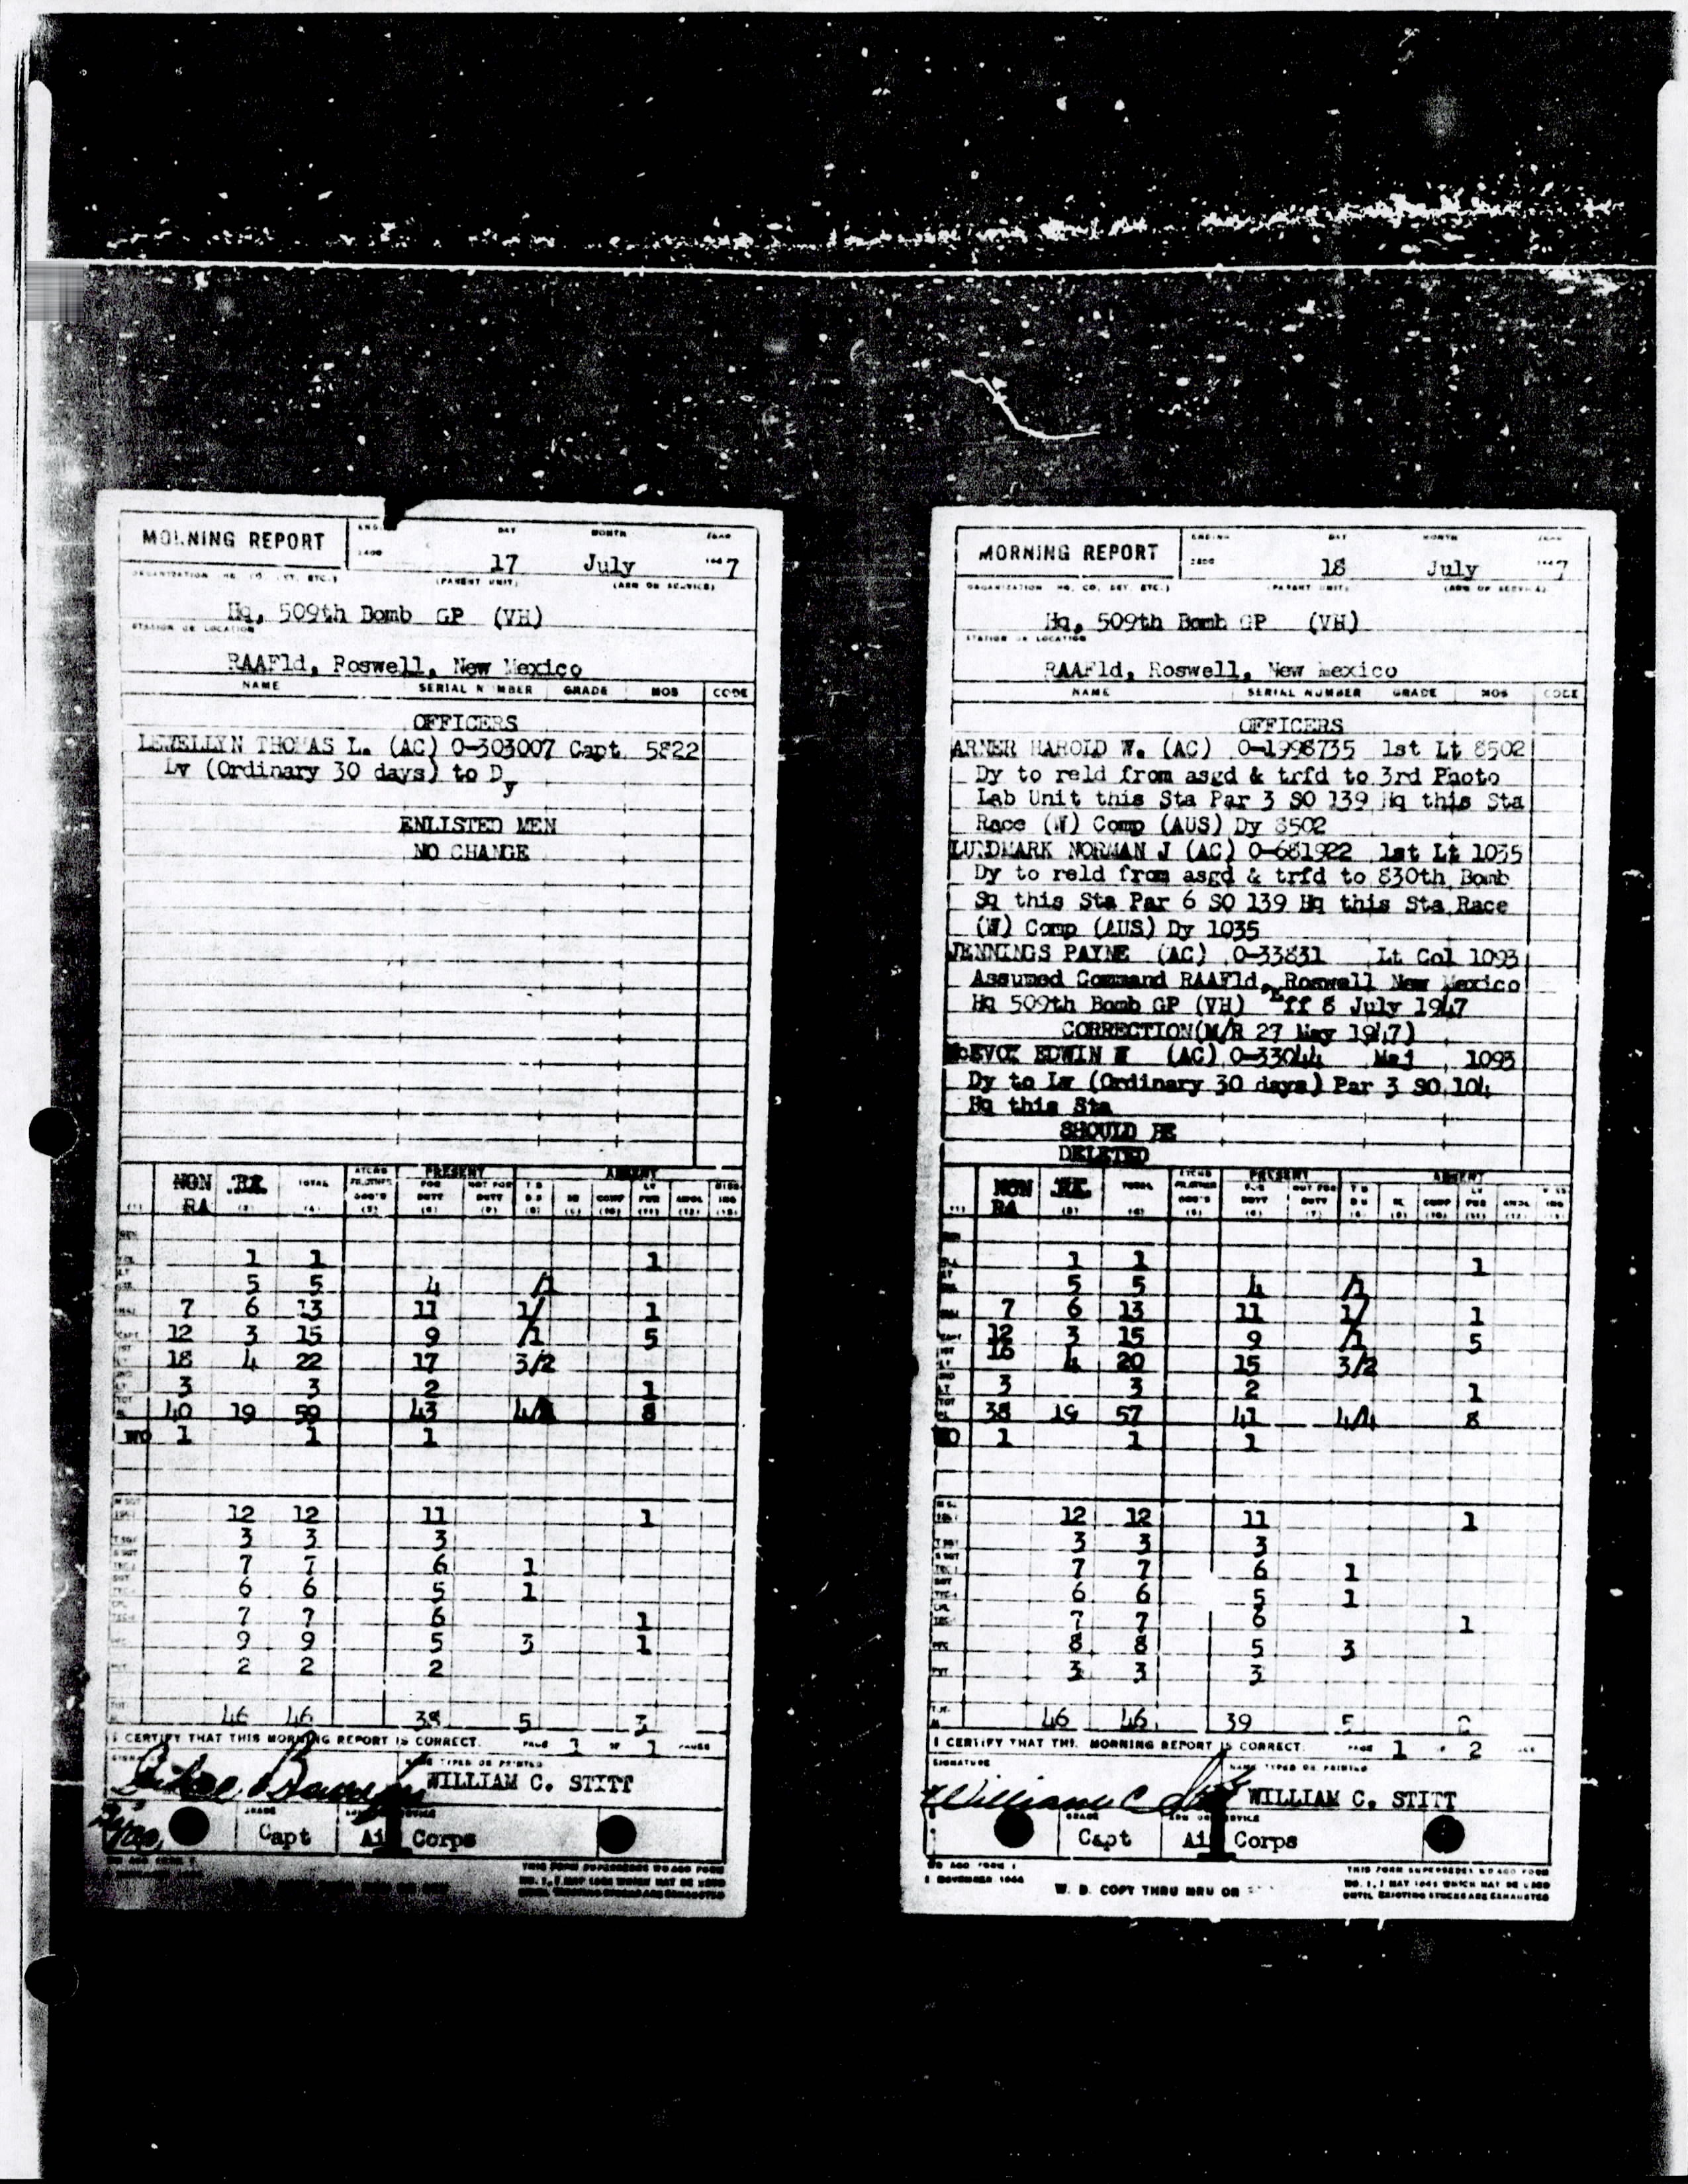 MORNING REPORT
ENDING DAY MONTH YEAR
2400 17 July 1947
ORGANIZATION (HQ. CO. DET. ETC.) (PARENT UNIT) (ARM OR SERVICE)
Hq, 509th Bomb GP (VH)
STATION OR LOCATION
RAAFld, Roswell, New Mexico
NAME SERIAL NUMBER GRADE MOS CODE
OFFICERS
LEWELLYN THOMAS L. (AC) O-303007 Capt 5822
Lv (Ordinary 30 days) to Dy
ENLISTED MEN
NO CHANGE
PRESENT ABSENT
NON RA RA TOTAL
1 1 1
5 5 4 /1
7 6 13 11 1/ 1
12 3 15 9 /1 5
18 4 22 17 3/2
3 3 2 1
40 19 59 43 8
WO 1 1 1
12 12 11 1
3 3 3
7 7 6 1
6 6 5 1
7 7 6 1
9 9 5 3 1
2 2 2
46 46 38 5 3
I CERTIFY THAT THIS MORNING REPORT IS CORRECT. PAGE 1 OF 1 PAGES
NAME TYPED OR PRINTED
WILLIAM C. STITT
GRADE
Capt Air Corps
THIS FORM SUPERSEDES WD AGO FORM
NO. 1, 1 MAY 1945 WHICH MAY BE USED
UNTIL EXISTING STOCKS ARE EXHAUSTED
MORNING REPORT
ENDING DAY MONTH YEAR
2400 18 July 1947
ORGANIZATION (HQ. CO. DET. ETC.) (PARENT UNIT) (ARM OR SERVICE)
Hq, 509th Bomb GP (VH)
STATION OR LOCATION
RAAFld, Roswell, New Mexico
NAME SERIAL NUMBER GRADE MOS CODE
OFFICERS
ARNER HAROLD W. (AC) O-1998735 1st Lt 8502
Dy to reld from asgd & trfd to 3rd Photo
Lab Unit this Sta Par 3 SO 139 Hq this Sta
Race (W) Comp (AUS) Dy 8502
LUNDMARK NORMAN J (AC) O-681922 1st Lt 1035
Dy to reld from asgd & trfd to 830th Bomb
Sq this Sta Par 6 SO 139 Hq this Sta Race
(W) Comp (AUS) Dy 1035
JENNINGS PAYNE (AC) O-33831 Lt Col 1093
Assumed Command RAAFld, Roswell New Mexico
Hq 509th Bomb GP (VH) Eff 8 July 1947
CORRECTION(M/R 27 May 1947)
McEVOY EDWIN (AC) O-33044 Maj 1093
Dy to Lv (Ordinary 30 days) Par 3 SO 104
Hq this Sta
SHOULD BE
DELETED
PRESENT ABSENT
NON RA RA TOTAL
1 1 1
5 5 4 /1
7 6 13 11 1/ 1
12 3 15 9 /1 5
16 4 20 15 3/2
3 3 2 1
38 19 57 41 4/4 8
WO 1 1 1
12 12 11 1
3 3 3
7 7 6 1
6 6 5 1
7 7 6 1
8 8 5 3
3 3 3
46 46 39 5
I CERTIFY THAT THIS MORNING REPORT IS CORRECT. PAGE 1 OF 2
SIGNATURE NAME TYPED OR PRINTED
William C Stitt WILLIAM C. STITT
GRADE ARM OR SERVICE
Capt Air Corps
WD AGO FORM 1
1 NOVEMBER 1944
W. D. COPY THRU MRU OR
THIS FORM SUPERSEDES WD AGO FORM
NO. 1, 1 MAY 1945 WHICH MAY BE USED
UNTIL EXISTING STOCKS ARE EXHAUSTED